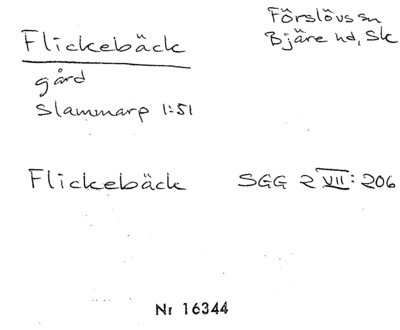 Flickebäck
Förslövs sn
Bjäre hd, Sk
gård
Slammarp 1:51
Flickebäck SGG 2 VII: 206
Nr 16344